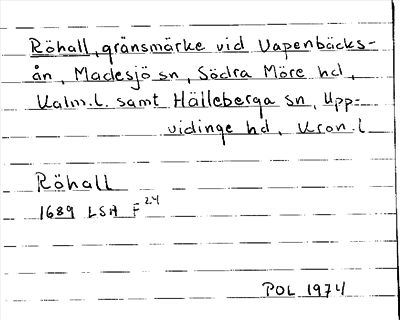 Röhall, gränsmärke vid Vapenbäcks-
ån, Madesjö sn, Södra Möre hd,
Kalm. l. samt Hälleberga sn, Upp-
vidinge hd, Kron. l
Röhall
1689 LSA F 24
POL 1974